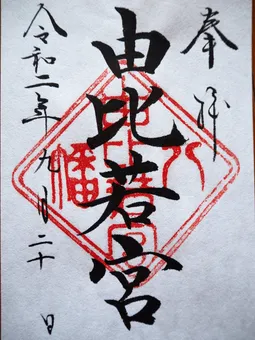 奉拝
由比若宮
令和二年九月二十日